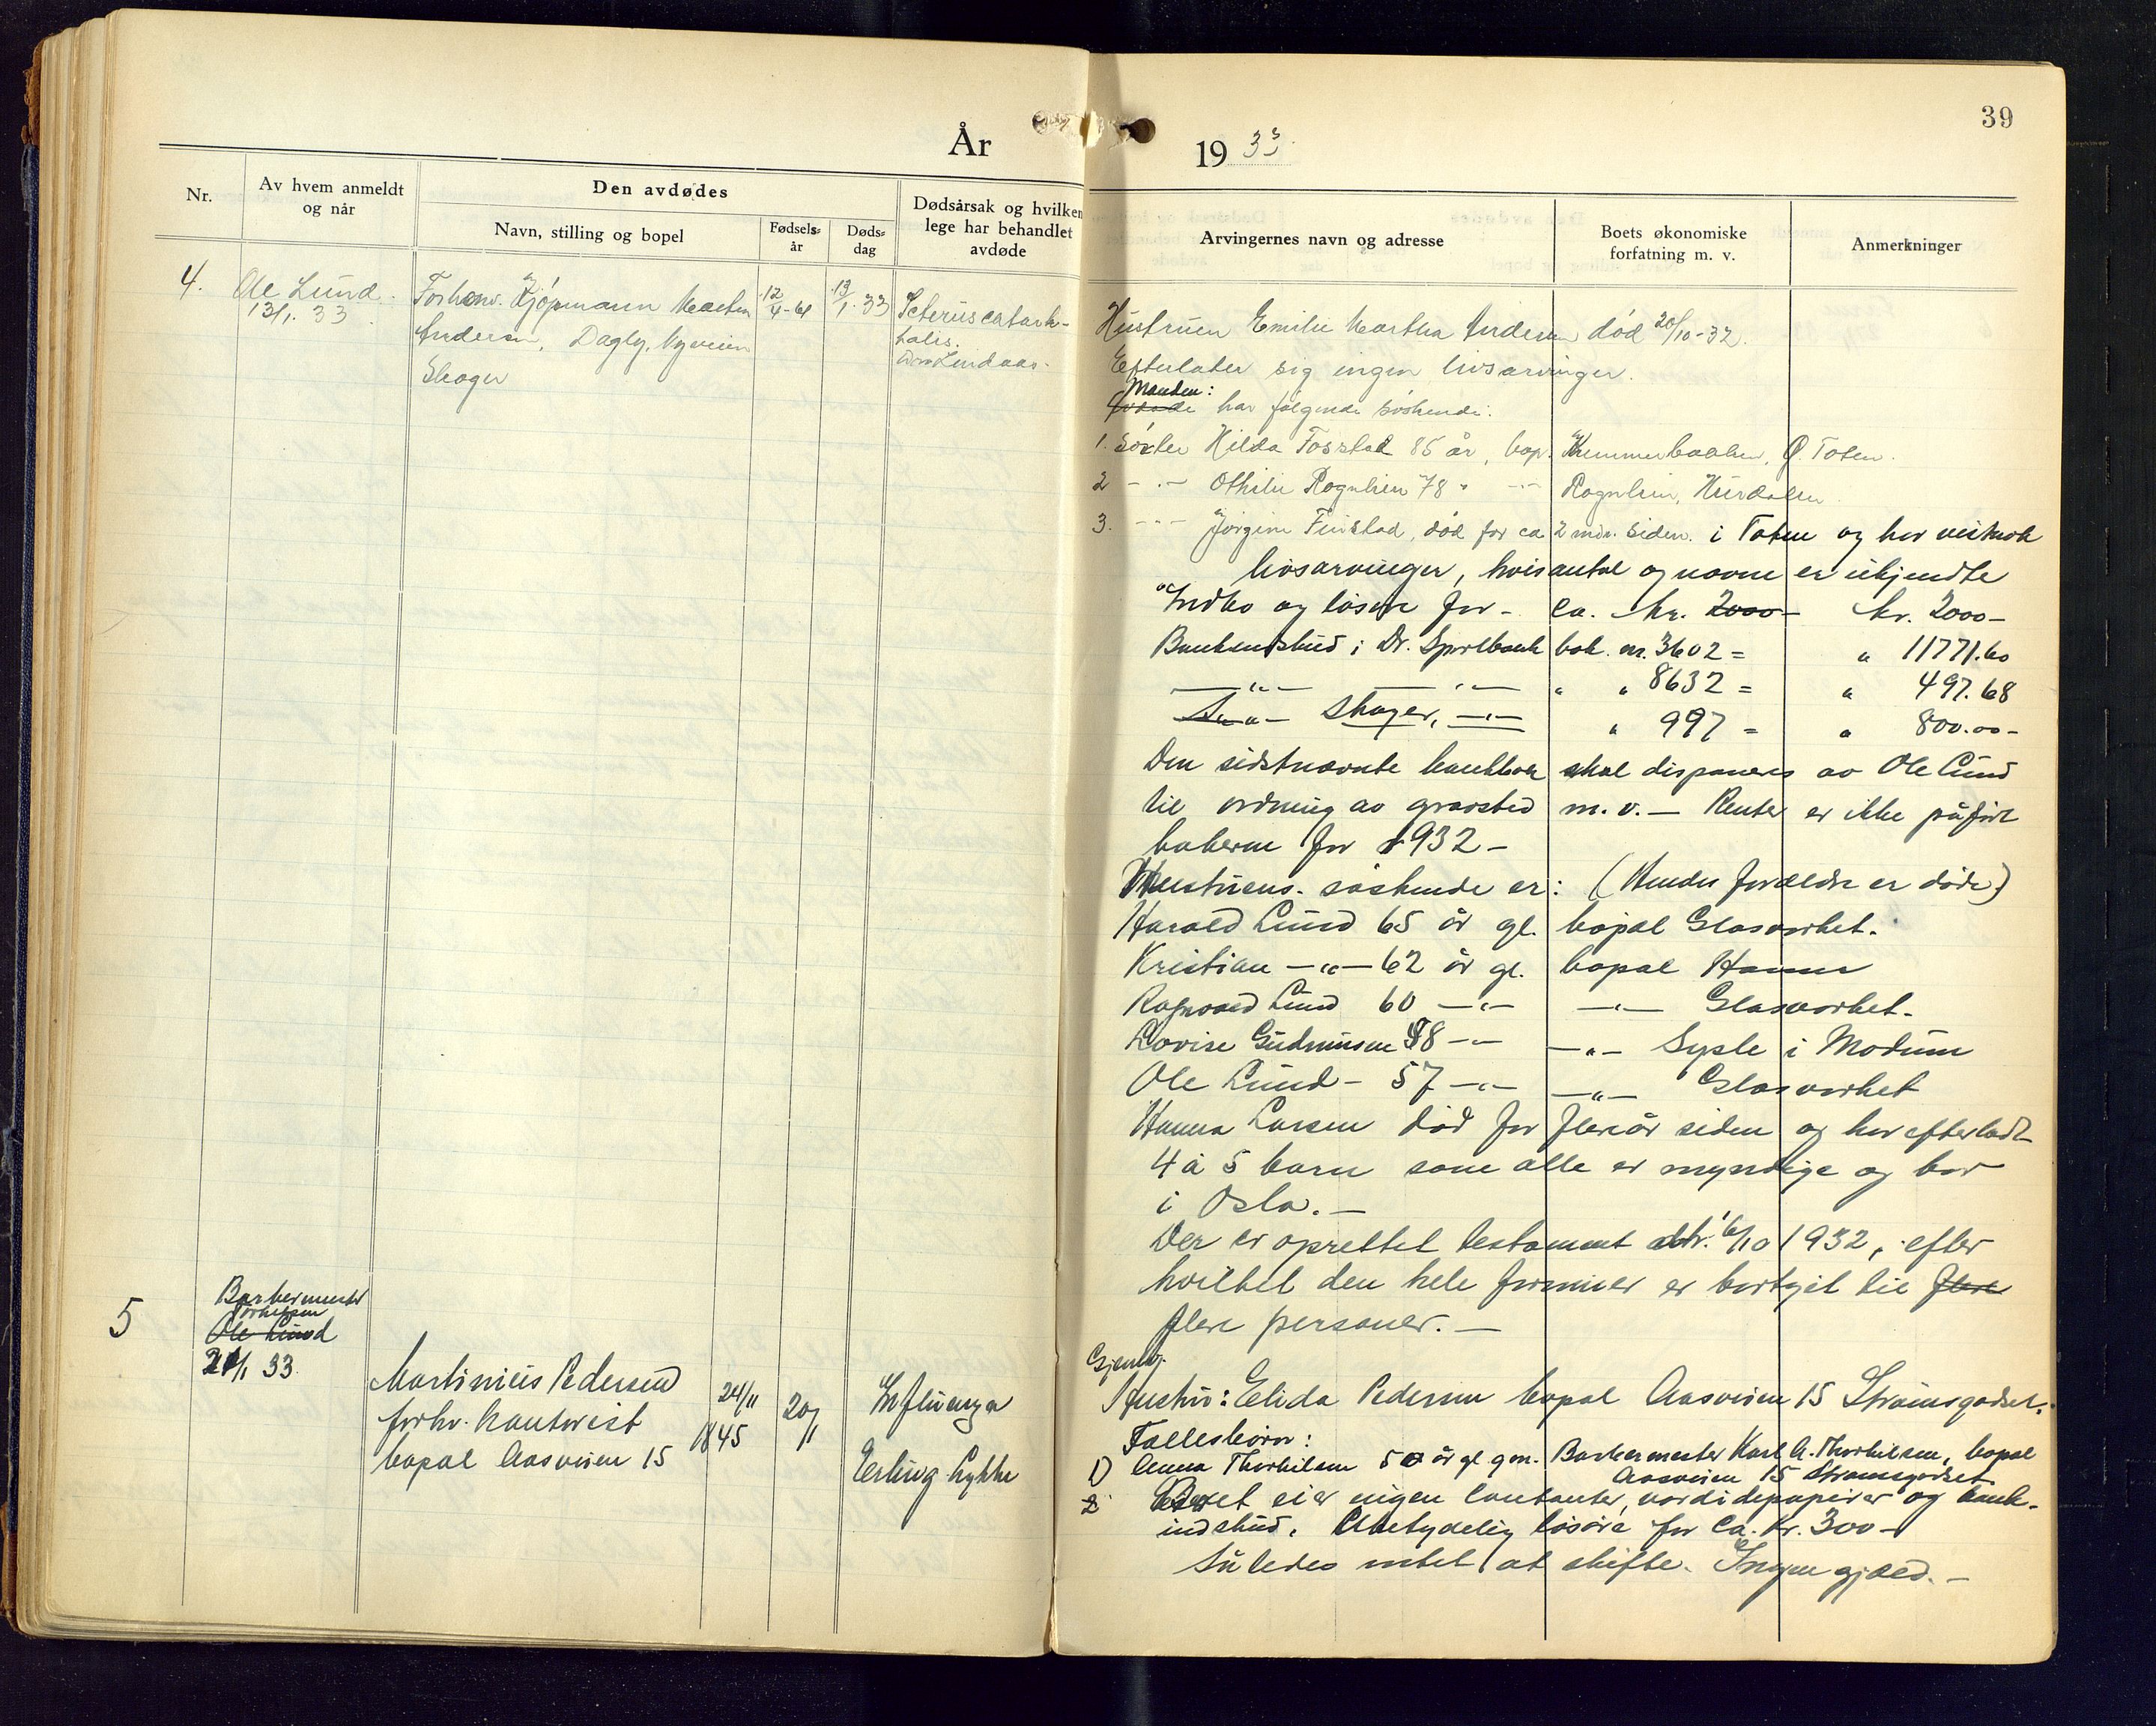 År 1933.
39
Nr.
Av hvem anmeldt og når
Den avdødes
Navn, stilling og bopel
Fødsels-år
Døds-dag
Dødsårsak og hvilken lege har behandlet avdøde
Arvingernes navn og adresse
Boets økonomiske forfatning m. v.
Anmerkninger
4.
Ole Lund
13/1. 33
Forhenv. Kjøpmann Martin
Andersen, Dagly, Nyveien
Skoger
12/4-61
13/1. 33
Icteruscatarh-
halis.
Lindaas.
Hustruen Emilie Martha Andersen død 20/10-32.
Efterlater sig ingen livsarvinger.
Manden:
Avdøde har følgende søskende:
1. Søster Hilda Fosstad 85 år, bop. Kummerbakken, Ø. Toten.
2 -"- Othilie Rognlien 78 " -"- Rognlien, Hurdalen.
3. -"- Jørgine Finstad, død for ca 2 mdr. siden. i Toten og har visknok
livsarvinger, hvis antal og navne er ukjendte
Indbo og løsøre for - ca. kr. 2000- kr. 2000-
Bankindskud i Dr. Sparebank bok nr. 3602 = " 11771.60
-"- -"- " " 8632 = " 497.68
-"- Skoger, -"- " 997 = " 800.00-
Den sidstnævnte bankbok skal disponeres av Ole Lund
til ordning av gravsted m. v. - Renter er ikke påført
bøkerne for 1932-
Hustruens søskende er: (Hendes forældre er døde)
Harald Lund 65 år gl. bopæl Glasværket.
Kristian -"- 62 år gl. bopæl
Ragnvald Lund 60 -"- -"- Glasværket.
Lovise Gudmunsen 58 -"- -"- Sysle i Modum
Ole Lund - 57 -"- -"- Glasværket
Hanna Larsen død for flere år siden og har efterladt
4 à 5 barn som alle er myndige og bor
i Oslo. -
Der er oprettet testament datr. 6/10 1932, efter
hvilket den hele formue er bortgit til flere
flere personer. -
5
Barbermester
Torkilsen
Ole Lund
21/1 33.
Martinius Pedersen
forhv.
bopæl Aasveien 15
24/11
1845
20/1
Influenza
Erling Lykke
Gjenlev.
Hustru: Elida Pedersen bopæl Aasveien 15 Strømsgodset.
Fællesbørn:
1) Anna Thorkilsen 50 år gl. gm. Barbermester Karl A. Thorkilsen, bopæl
Aasveien 15 Strømsgodset
2 Boet eier ingen kontanter, værdidepapirer og bank-
indskud. Ubetydelig løsøre for ca. kr. 300-
Således intet at skifte. Ingen gjæld. -